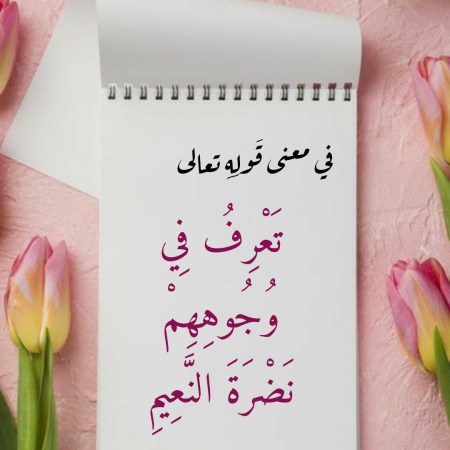 في معنى قَولِه تعالى
تَعْرِفُ فِي
وُجُوهِهِمْ
نَضْرَةَ النَّعِيمِ